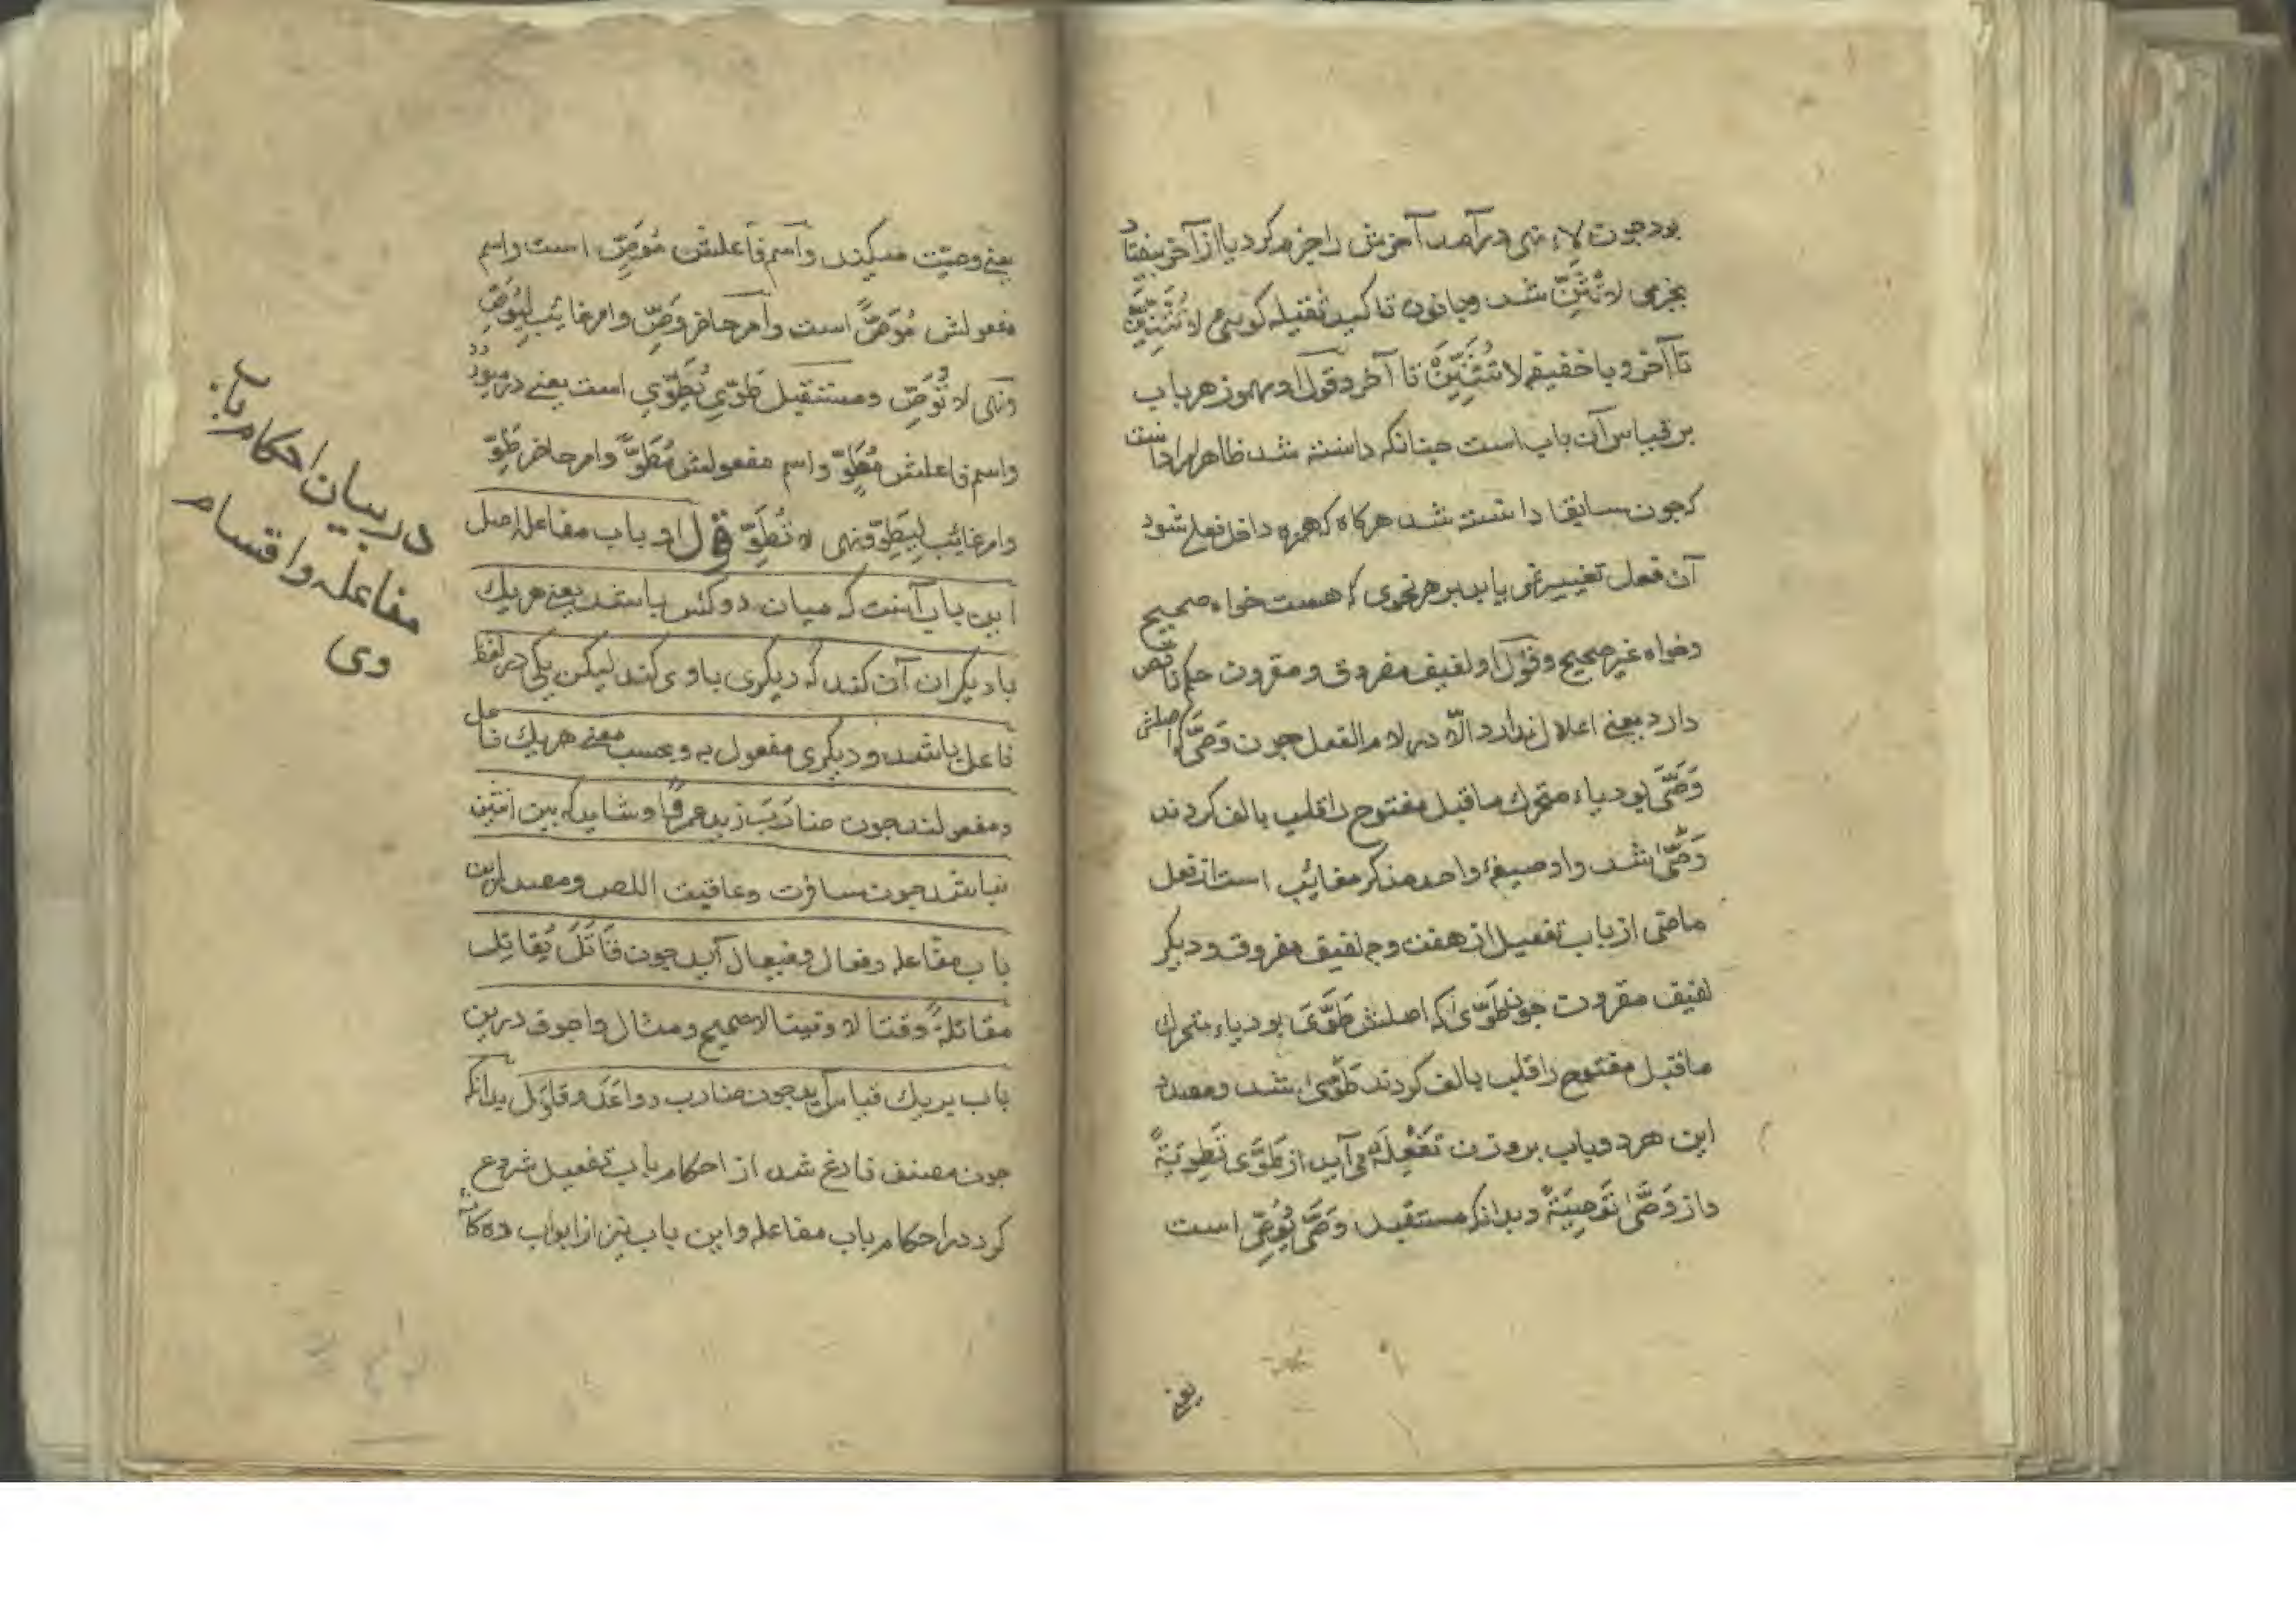 بود چون لاء نهی درآمد آخرش را جزم کرد یا از آخر بیفتاد
بجزمی لا تُثَنِّ شد و با نون تاکید ثقیله گویی لا تُثَنِّیَنَّ
تا آخر و با خفیفه لا تُثَنِّیَنْ تا آخر و قول او مهموز هر باب
بر قیاس آن باب است چنانکه دانسته شد ظاهر مراد آنست
که چون سابقا دانسته شد هرکاه که همزه داخل فعل شود
آن فعل تغییر نمی یابد بر هر نحوی که هست خواه صحیح
وخواه غیر صحیح و قول او لفیف مفروق و مقرون حکم ناقص
دارد یعنی اعلال ندارد الّا در لام الفعل چون وَصَّی که اصلش
وَصَّیَ بود یاء متحرک ماقبل مفتوح را قلب بالف کردند
وَصّیٰ شد و او صیغهٔ واحد مذکر مغایب است از فعل
ماضی از باب تفعیل از هفت وجه لفیف مفروق و دیکر
لفیف مقرون چون طَوّیٰ که اصلش طَوَّیَ بود یاء متحرک
ماقبل مفتوح را قلب بالف کردند طَوّیٰ شد و مصدر
این هر دو باب بر وزن تَفْعِلَة می آید از طَوّی تَطْوِیَةً
و از وَصّیٰ تَوْصِیَةً و بدانکه مستقبل وَصّی یُوَصِّی است
یعنی
یعنی وصیّت میکند و اسم فاعلش مُوَصٍّ است واسم
مفعولش مُوَصًّی است و امر حاضر وَصِّ و امر غایب لِیُوَصِّ
ونهی لا تُوَصِّ و مستقبل طَوّی یُطَوِّی است یعنی درمی نوردد
واسم فاعلش مُطَوٍّ و اسم مفعولش مُطَوًّی وامر حاضر طَوِّ
وامر غایب لِیُطَوِّ و نهی لا تُطَوِّ قول او باب مفاعله اصل
این باب آنست که میان دو کس باشد یعنی هر یک
با دیکر آن کند که دیکری با وی کند لیکن یکی در لفظ
فاعل باشد و دیکری مفعول به و بحسب معنی هر یک فاعل
ومفعولند چون ضارَبَ زید عمرًوا و شاید که بین اثنین
نباشد چون سافرت وعاقبت اللص و مصدر این
باب مفاعله و فعال و فیعال آید چون قَاتَلَ یُقاتِل
مقاتلةً وقتالا وقیتالا صحیح و مثال واجوف در این
باب بر یک قیاس آید چون ضارب و واعَدَ و قاوَلَ بدانکه
چون مصنف فارغ شد از احکام باب تفعیل شروع
کرد در احکام باب مفاعله و این باب نیز از ابواب ده کانه
در بیان احکام باب
مفاعله واقسام
وی